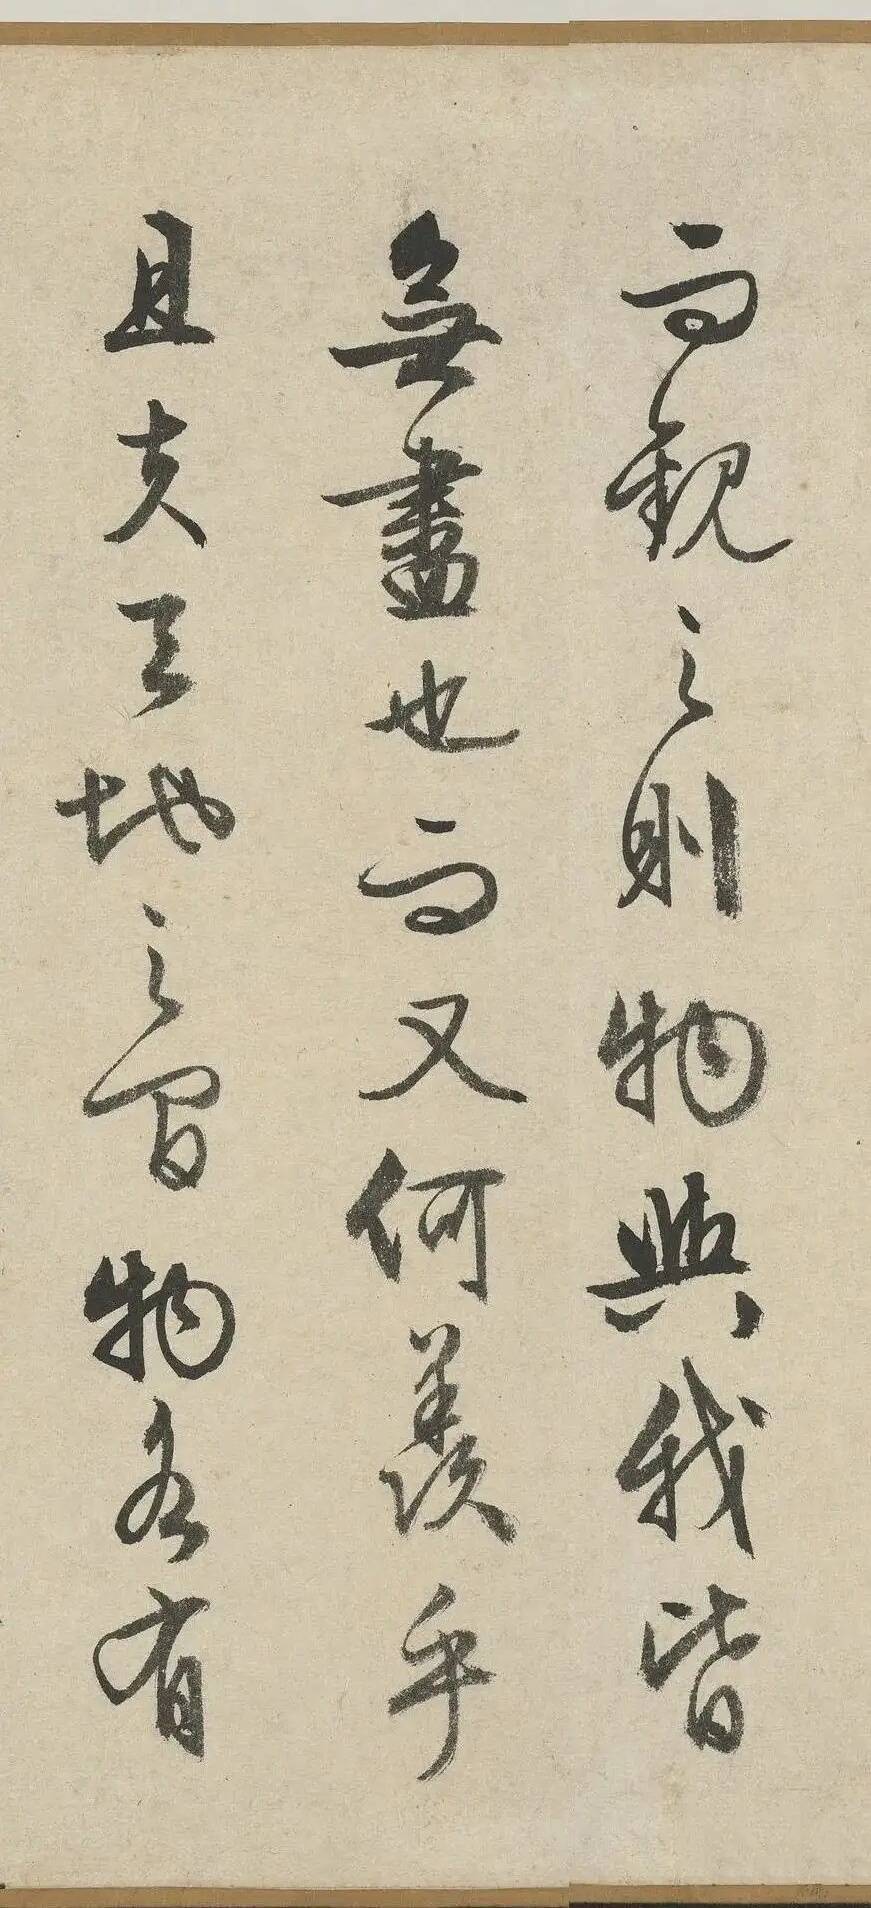 而觀之則物與我皆
無盡也而又何羨乎
且夫天地之間物各有